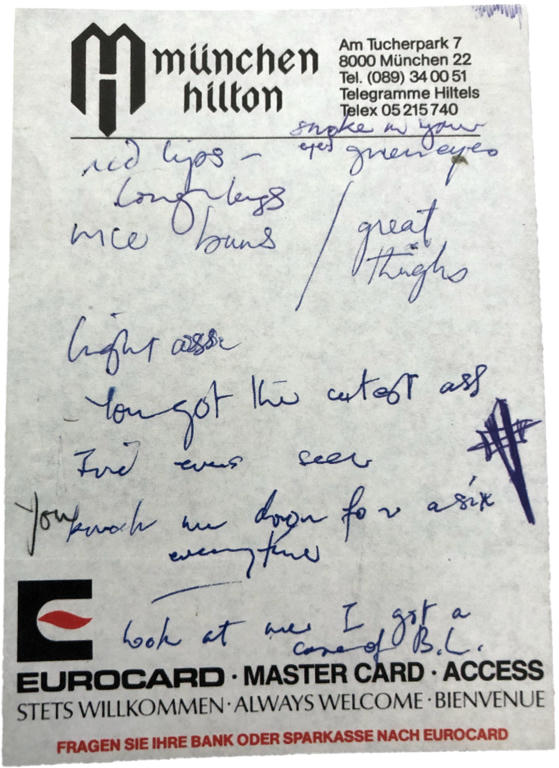 münchen
hilton
Am Tucherpark 7
8000 München 22
Tel. (089) 34 00 51
Telegramme Hiltels
Telex 05 215 740
smoke in your
eyes green eyes
red lips –
long legs
nice buns / great
thighs
tight asse
– You got the cutest ass
I've ever seen
You knock me down for a six
everytime
Look at me I got a
case of B.L.
EUROCARD · MASTER CARD · ACCESS
STETS WILLKOMMEN · ALWAYS WELCOME · BIENVENUE
FRAGEN SIE IHRE BANK ODER SPARKASSE NACH EUROCARD